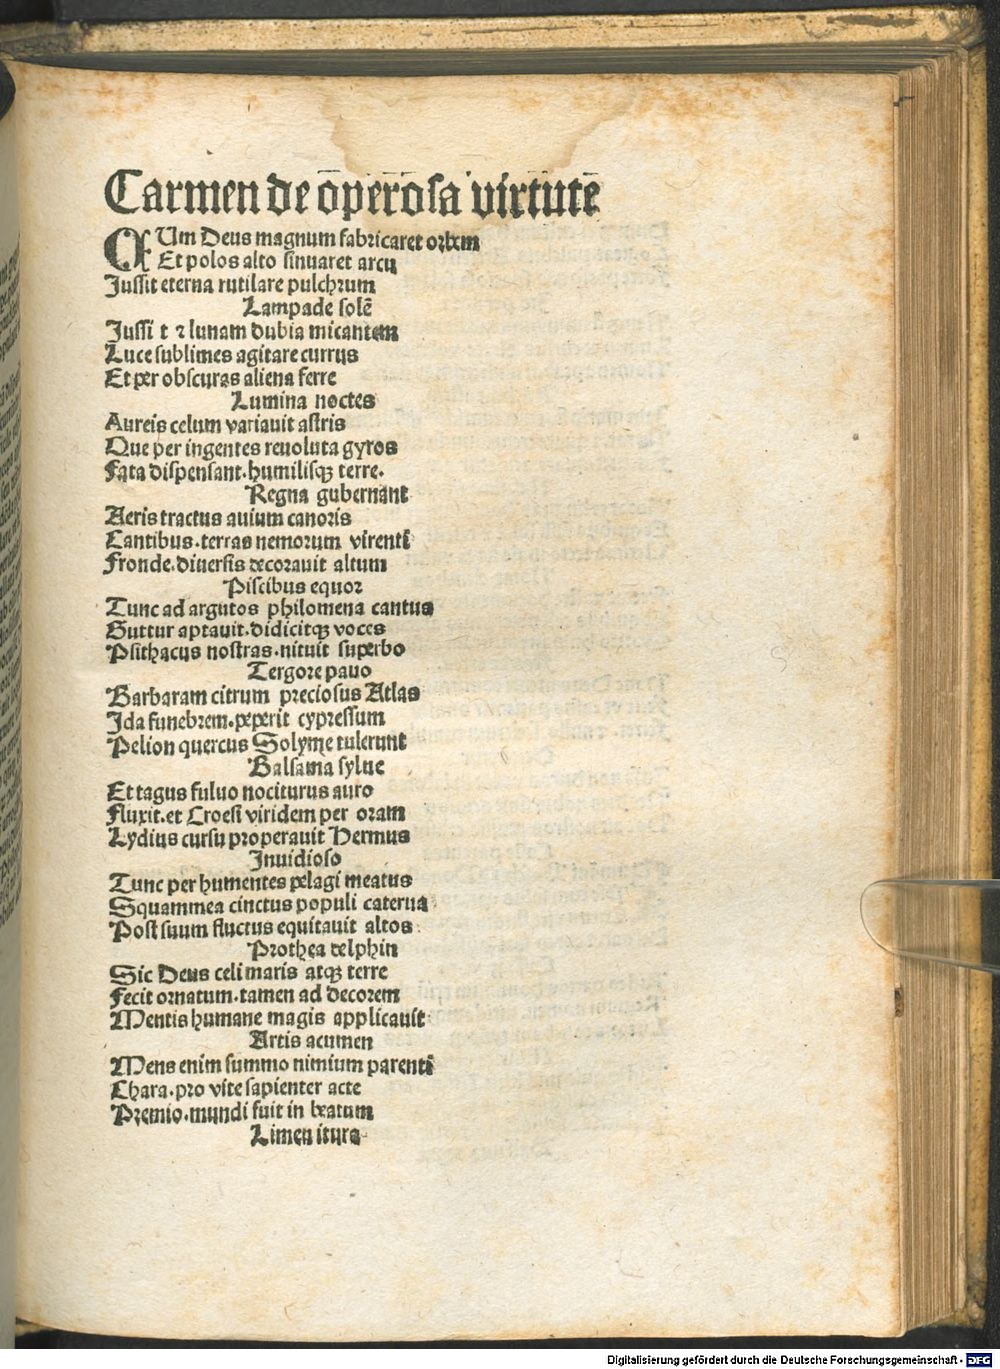 Carmen de operosa virtute
CUm Deus magnum fabricaret orbem
Et polos alto sinuaret arcu
Jussit eterna rutilare pulchrum
Lampade solē
Jussi t ⁊ lunam dubia micantem
Luce sublimes agitare currus
Et per obscuras aliena ferre
Lumina noctes
Aureis celum variauit astris
Que per ingentes reuoluta gyros
Fata dispensant. humilisqȝ terre.
Regna gubernant
Aeris tractus auium canoris
Cantibus. terras nemorum virenti
Fronde. diuersis decorauit altum
Piscibus equor
Tunc ad argutos philomena cantus
Guttur aptauit. didicitqȝ voces
Psithacus nostras. nituit superbo
Tergore pauo
Barbaram citrum preciosus Atlas
Ida funebrem. peperit cypressum
Pelion quercus Solyme tulerunt
Balsama sylue
Et tagus fuluo nociturus auro
Fluxit. et Croesi viridem per oram
Lydius cursu properauit Hermus
Inuidioso
Tunc per humentes pelagi meatus
Squammea cinctus populi caterua
Post suum fluctus equitauit altos
Prothea delphin
Sic Deus celi maris atqȝ terre
Fecit ornatum. tamen ad decorem
Mentis humane magis applicauit
Artis acumen
Mens enim summo nimium parenti
Chara. pro vite sapienter acte
Premio. mundi fuit in beatum
Limen itura
Digitalisierung gefördert durch die Deutsche Forschungsgemeinschaft - DFG